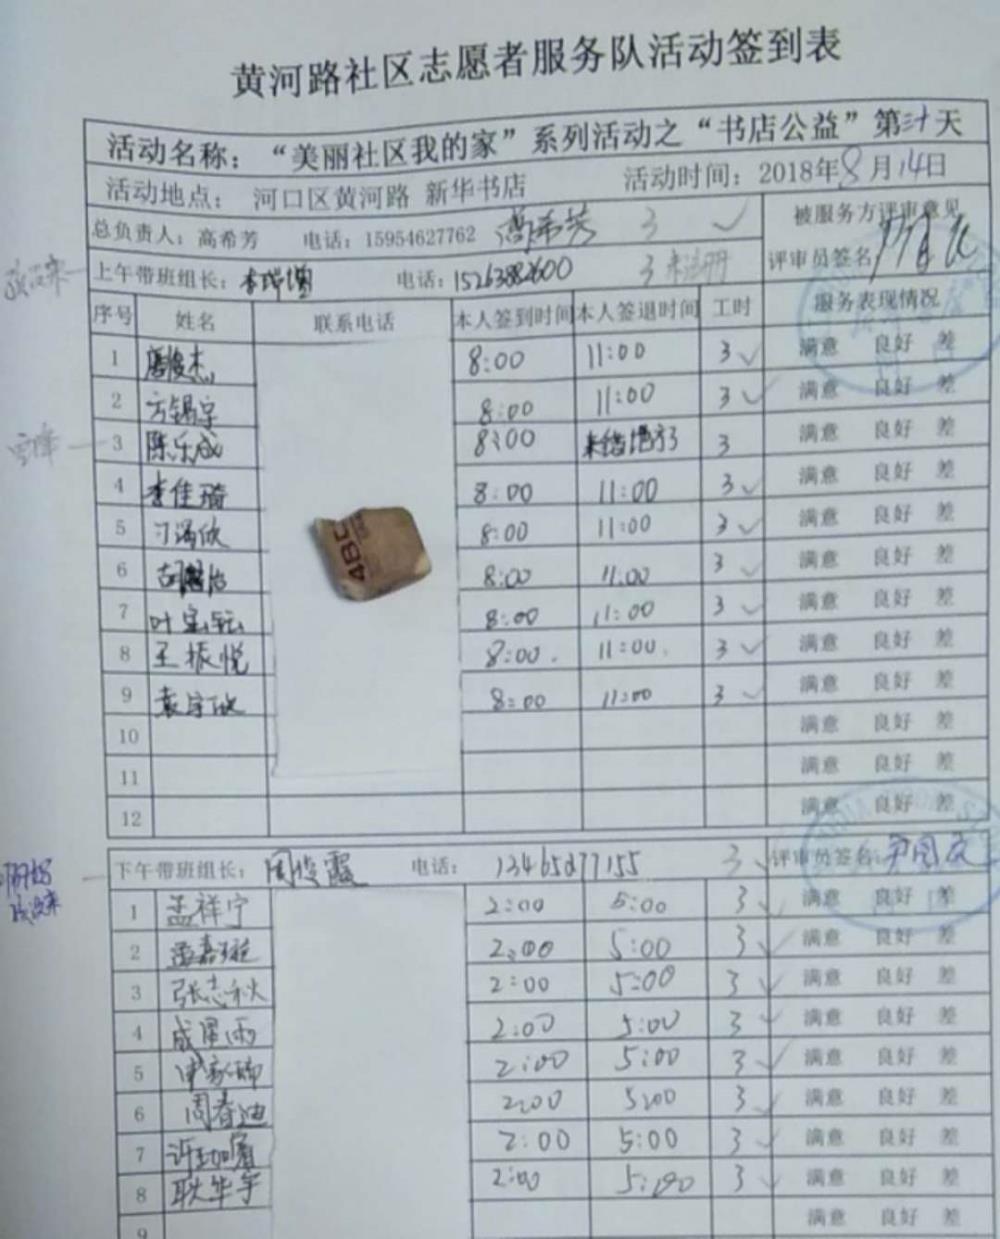 黄河路社区志愿者服务队活动签到表
活动名称：“美丽社区我的家”系列活动之“书店公益”第三十天
活动地点： 河口区黄河路 新华书店 活动时间：2018年8月14日
总负责人：高希芳 电话：15954627762 高希芳 3 被服务方评审意见
上午带班组长： 电话： 3 未注册 评审员签名
序号 姓名 联系电话 本人签到时间 本人签退时间 工时 服务表现情况
1 唐俊杰 8:00 11:00 3 满意 良好 差
2 方锡宇 8:00 11:00 3 满意 良好 差
3 陈乐成 8:00 3 满意 良好 差
4 李佳琦 8:00 11:00 3 满意 良好 差
5 刁海欣 8:00 11:00 3 满意 良好 差
6 8:00 11:00 3 满意 良好 差
7 8:00 11:00 3 满意 良好 差
8 王振悦 8:00 11:00 3 满意 良好 差
9 袁宇欣 8:00 11:00 3 满意 良好 差
10 满意 良好 差
11 满意 良好 差
12 满意 良好 差
下午带班组长： 周俊霞 电话： 13465277155 3 评审员签名：
1 孟祥宁 2:00 5:00 3 满意 良好 差
2 2:00 5:00 3 满意 良好 差
3 张志秋 2:00 5:00 3 满意 良好 差
4 2:00 5:00 3 满意 良好 差
5 2:00 5:00 3 满意 良好 差
6 周春迪 2:00 5:00 3 满意 良好 差
7 2:00 5:00 3 满意 良好 差
8 耿华宇 2:00 5:00 3 满意 良好 差
9 满意 良好 差
4BC